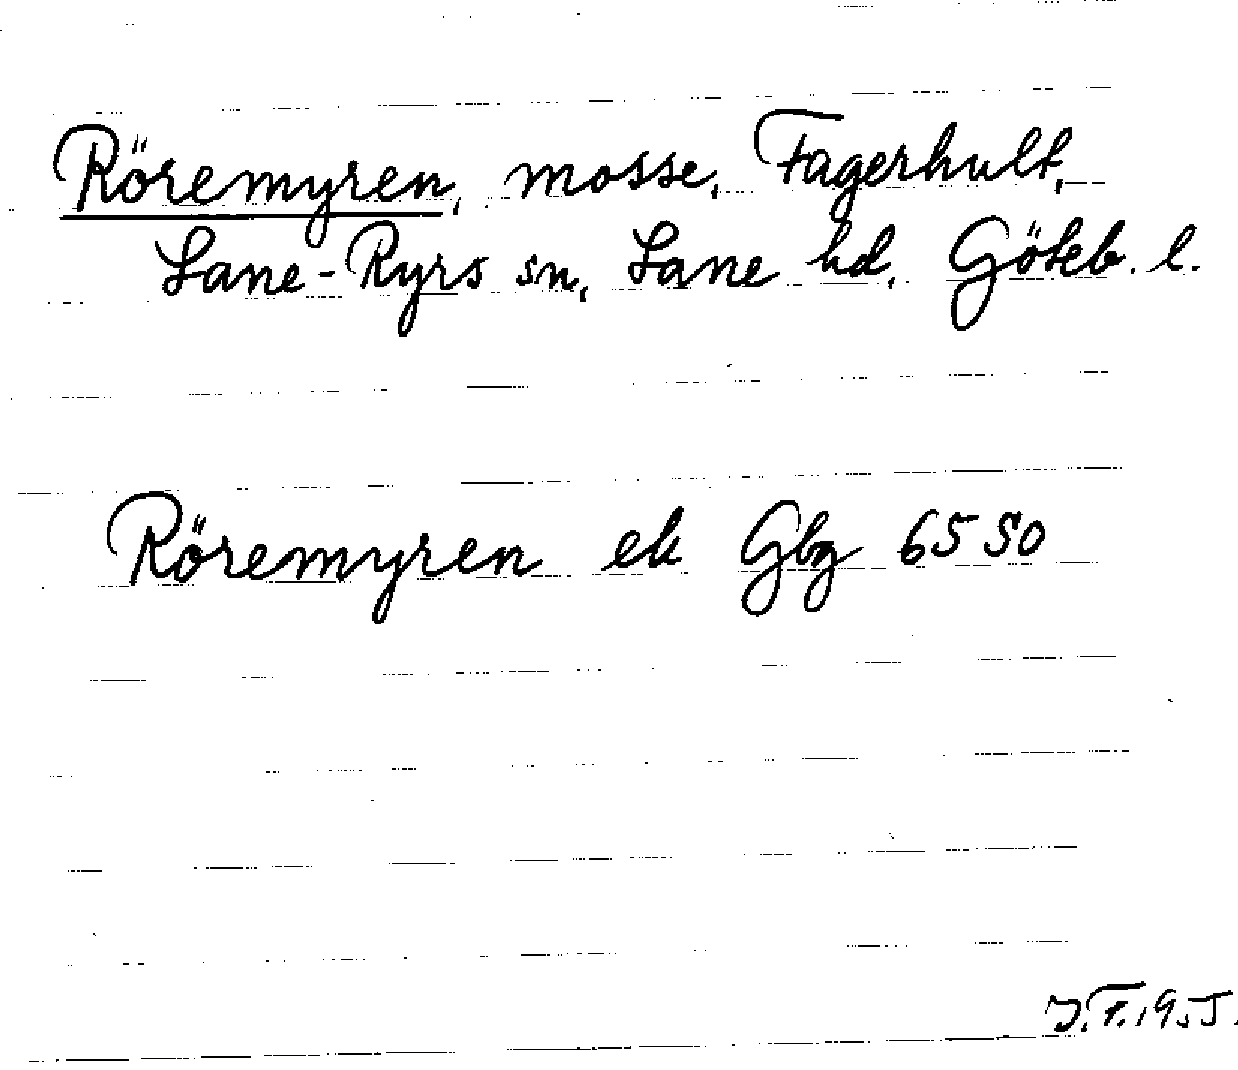 Röremyren, mosse, Fagerhult,
Lane-Ryrs sn, Lane hd, Göteb. l.
Röremyren ek Gbg 65 SO
J.F. 1955.